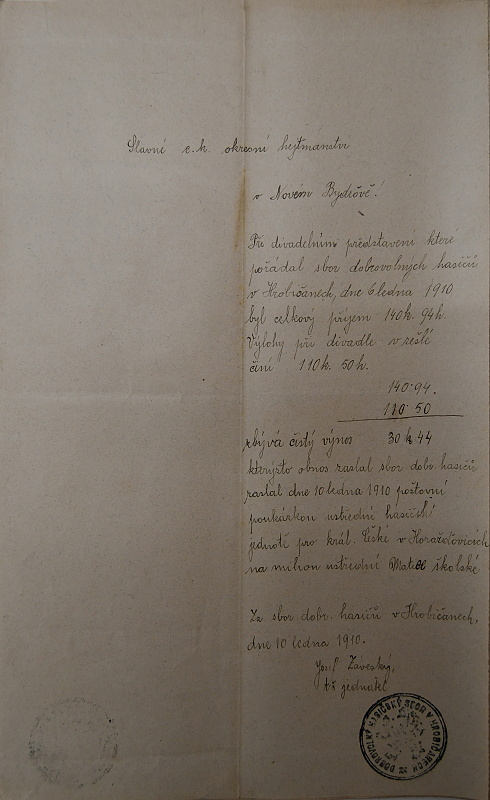 Slavné c.k. okresní hejtmanství
v Novém Bydžově!
Při divadelním představení které
pořádal sbor dobrovolných hasičů
v Hrobičanech, dne 6 ledna 1910
byl celkový příjem 140k. 94h.
Výlohy při divadle v reští
činí 110k. 50h.
140·94.
110·50
zbývá čistý výnos 30k 44
kterýžto obnos zaslal sbor dobr. hasičů
zaslal dne 10 ledna 1910 poštovní
poukázkou ustřední hasičské
jednotě pro král. České v Horažďovicích
na milion ustřední Matice školské
Za sbor dobr. hasičů v Hrobičanech,
dne 10 ledna 1910.
Josef Záveský,
t.č. jednatel
DOBROVOLNÝ HASIČSKÝ SBOR V HROBIČANECH